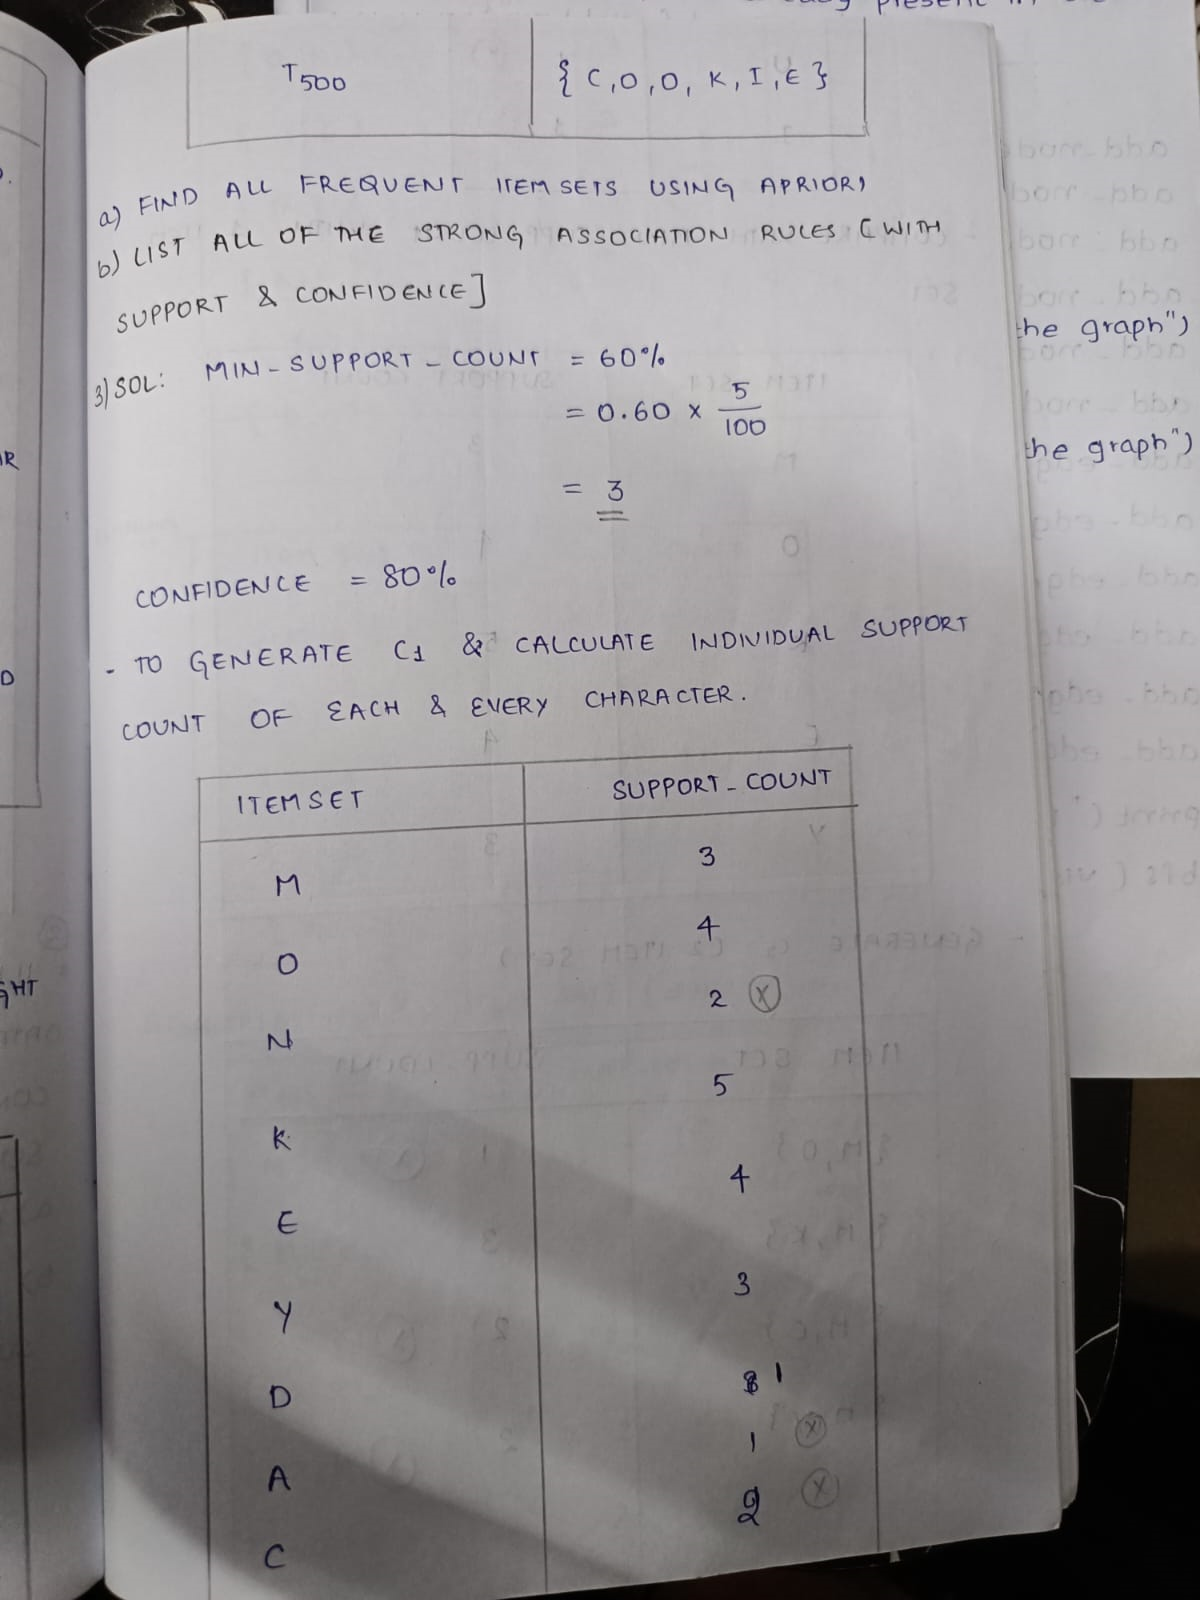 T500 { C,O,O, K, I, E }
a) FIND ALL FREQUENT ITEM SETS USING APRIORI
b) LIST ALL OF THE STRONG ASSOCIATION RULES [ WITH
SUPPORT & CONFIDENCE ]
3) SOL: MIN - SUPPORT - COUNT = 60%
= 0.60 x 5/100
= 3
CONFIDENCE = 80%
- TO GENERATE C1 & CALCULATE INDIVIDUAL SUPPORT
COUNT OF EACH & EVERY CHARACTER.
ITEMSET SUPPORT - COUNT
M 3
O 4
N 2 (X)
K 5
E 4
Y 3
D 1
A 1 (X)
C 2 (X)
the graph")
the graph")
GHT